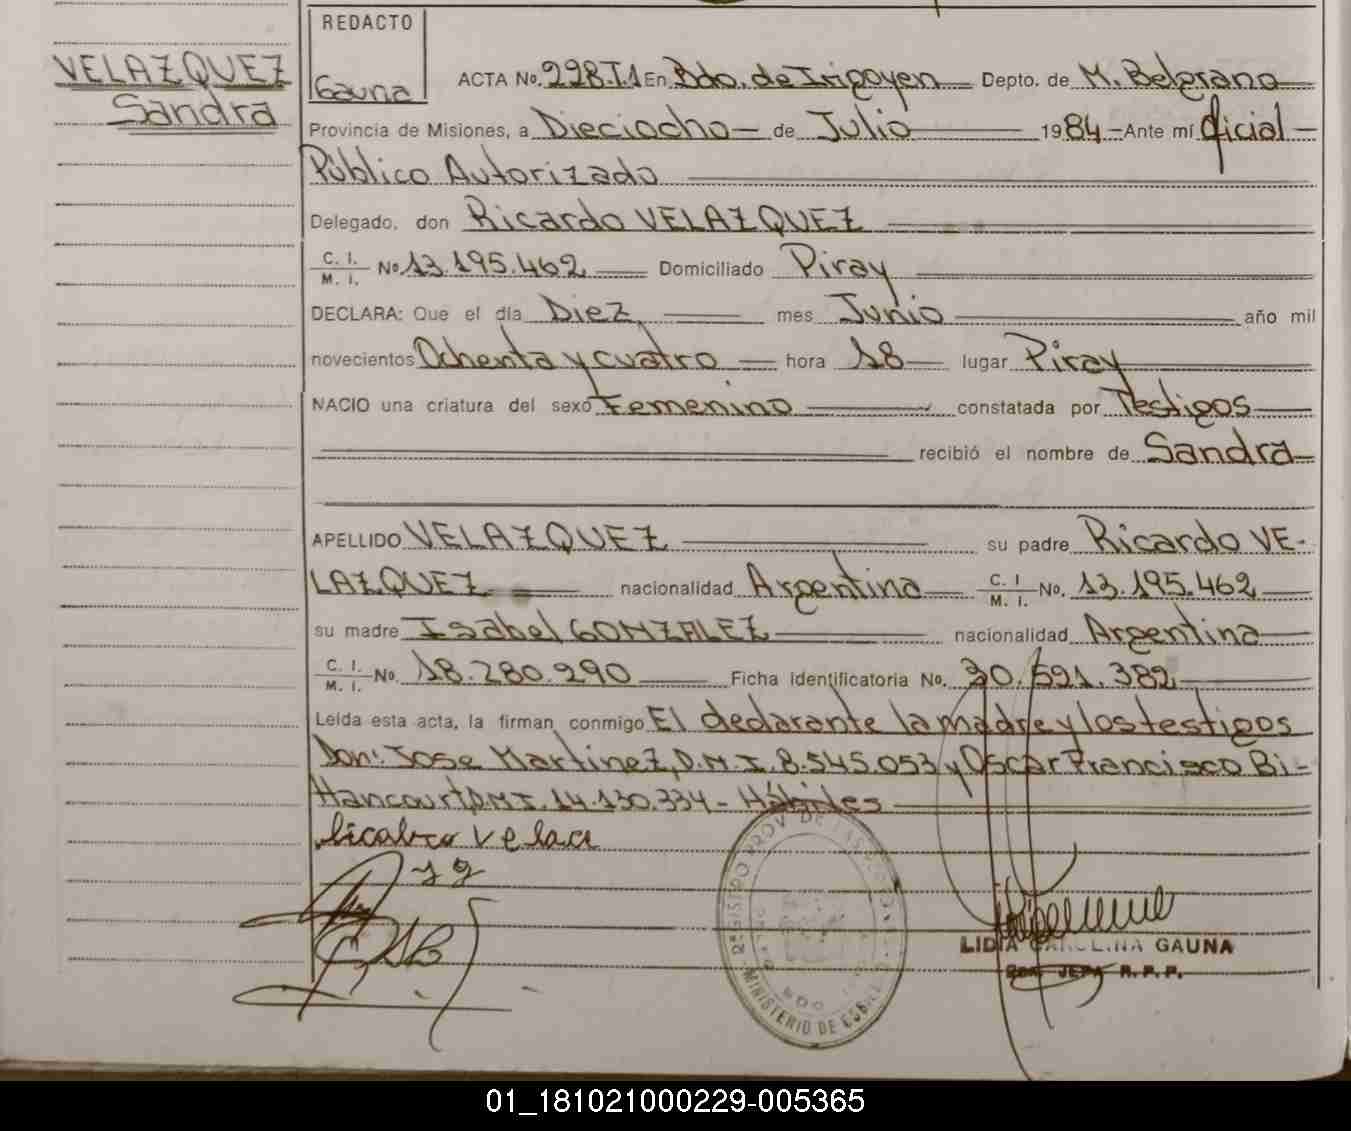 REDACTO
VELAZQUEZ
Sandra
Gauna
ACTA No. 228.T.1 En Bdo. de Irigoyen Depto. de M. Belgrano
Provincia de Misiones, a Dieciocho de Julio 1984 Ante mí Oficial
Público Autorizado
Delegado, don Ricardo VELAZQUEZ
C. I. M. I. No 13.195.462 Domiciliado Piray
DECLARA: Que el día Diez mes Junio año mil
novecientos Ochenta y cuatro hora 18 lugar Piray
NACIO una criatura del sexo Femenino constatada por Testigos
recibió el nombre de Sandra
APELLIDO VELAZQUEZ su padre Ricardo VE-
LAZQUEZ nacionalidad Argentina C. I. M. I. No. 13.195.462
su madre Isabel GONZALEZ nacionalidad Argentina
C. I. M. I. No. 18.280.290 Ficha Identificatoria No. 30.591.382
Leída esta acta, la firman conmigo El declarante la madre y los testigos
Don: Jose Martinez, D.M.I. 8.545.053 y Oscar Francisco Bi-
Hancourt, D.M.I. 14.130.334 - Hábiles
REGISTRO PROV. DE LAS PERSONAS
MINISTERIO DE GOBIERNO
LIDIA CAROLINA GAUNA
JEFA R. P. P.
01_181021000229-005365